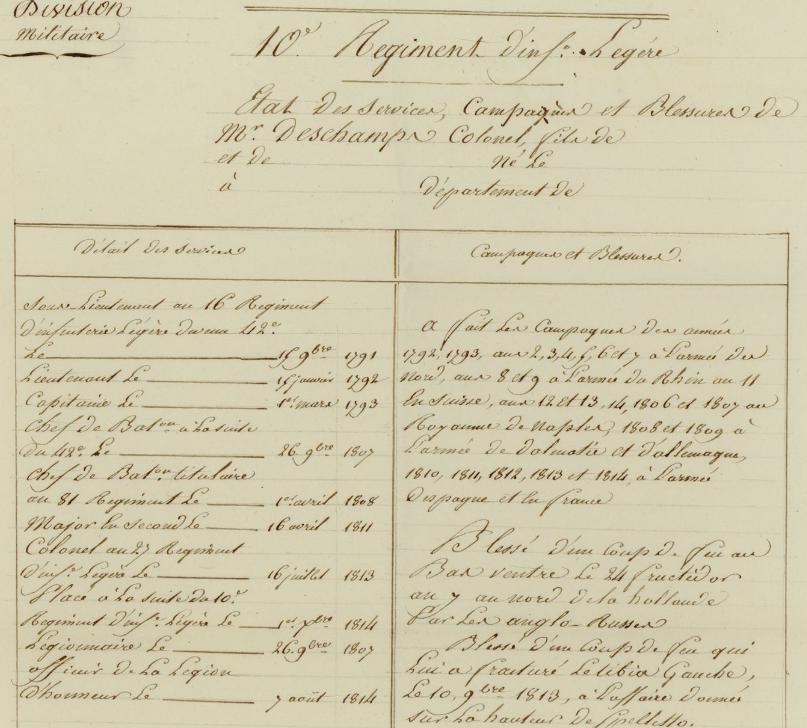 Division
Militaire
10e Regiment d'infie Legére
Etat des services, Campagnes et Blessures de
Mr. Deschamps Colonel, fils de
et de Né Le
à département de
Détail des services
Sous-Lieutenant au 16e Regiment
d'infanterie Légère devenu 42e
Le 15 9bre 1791
Lieutenant Le 15 janvier 1792
Capitaine Le 1er mars 1793
Chef de Baton à La suite
du 42e Le 26 9bre 1807
Chef de Baton titulaire
au 81 Regiment Le 1er avril 1808
Major En second Le 16 avril 1811
Colonel au 27 Regiment
d'infie Légère Le 16 juillet 1813
Placé à La suite du 10e
Regiment d'infie Légère Le 1er 1814
Legionnaire Le 26. 9bre 1807
officier de La Légion
d'honneur Le 7 août 1814
Campagnes et Blessures.
a fait Les Campagnes des années
1792, 1793, aux 2, 3, 4, 5, 6 et 7 à L'armée du
Nord, aux 8 et 9 à L'armée du Rhin au 11
En Suisse, aux 12 et 13, 14, 1806 et 1807 au
Royaume de Naples, 1808 et 1809 à
L'armée de dalmatie et d'allemagne,
1810, 1811, 1812, 1813 et 1814, à L'armée
d'espagne et En france
Blessé d'un coup de feu au
Bas ventre Le 24 fructidor
an 7 au nord de la hollande
Par Les anglo-Russes
Blessé d'un Coup de feu qui
Lui a fracturé Le tibia Gauche,
Le 10, 9bre 1813, à L'affaire donnée
sur La hauteur de